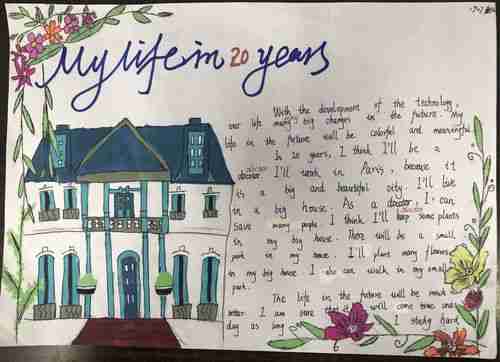 My life in 20 years
With the development of the technology,
our life many big changes in the future. My
life in the future will be colorful and meaningful.
In 20 years, I think I'll be a
doctor
I'll work in Paris, because it
it's a big and beautiful city. I'll live
in a big house. As a doctor, I can
doctor
save many people. I think I'll keep some plants
in my big house. There will be a small
park in my house. I'll plant many flowers
in my big house. I also can walk in my small
park.
The life in the future will be much
better. I am sure that it will come true one
day as long I study hard